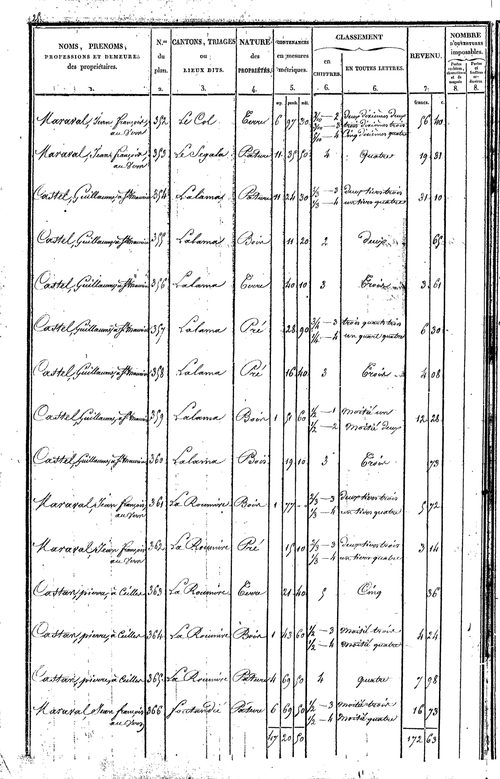 NOMS, PRENOMS, PROFESSIONS ET DEMEURE, des propriétaires. | N.os du plan. | CANTONS, TRIAGES ou LIEUX DITS. | NATURE des PROPRIÉTÉS. | CONTENANCES en mesures métriques. | CLASSEMENT en CHIFFRES. | EN TOUTES LETTRES. | REVENU. | NOMBRE D'OUVERTURES imposables.
2. 3. 4. 5. 6. 6. 7. 8. 8.
francs. c.
Maraval, Jean françois, au Vern 352 Le Col Terre 6 97 30 3/10 – 3 2/10 – 4 trois dixièmes trois 56 40
Maraval, Jean françois, au Vern 353 Le Segala Pature 11 35 50 4 quatre 19 31
Castel, Guillaume, à 354 Lalama Pature 11 24 30 2/3 – 3 1/3 – 4 deux tiers trois un tiers quatre 31 10
Castel, Guillaume, à 355 Lalama Bois 11 20 2 deux 65
Castel, Guillaume, à 356 Lalama Terre 40 10 3 Trois 3 61
Castel, Guillaume, à 357 Lalama Pré 28 90 3/4 – 3 1/4 – 4 trois quarts trois un quart quatre 6 30
Castel, Guillaume, à 358 Lalama Pré 16 40 3 Trois 4 08
Castel, Guillaume, à 359 Lalama Bois 1 51 60 1/2 – 1 1/2 – 2 Moitié un Moitié deux 12 28
Castel, Guillaume, à 360 Lalama Bois 19 10 3 Trois 73
Maraval, Jean françois, au Vern 361 La Roumive Bois 1 77 2/3 – 3 1/3 – 4 deux tiers trois un tiers quatre 5 72
Maraval, Jean françois au Vern 362 La Roumive Pré 15 10 2/3 – 3 1/3 – 4 deux tiers trois un tiers quatre 3 14
Castan, pierre, à Ceilles 363 La Roumive Terre 21 40 5 Cinq 36
Castan, pierre, à Ceilles 364 La Roumive Bois 1 43 60 1/2 – 3 1/2 – 4 Moitié trois Moitié quatre 4 24
Castan, pierre, à Ceilles 365 La Roumive Pature 4 69 50 4 quatre 7 98
Maraval Jean françois au Vern 366 Pature 6 69 50 1/2 – 3 1/2 – 4 Moitié trois Moitié quatre 16 73
47 20 50 172 63